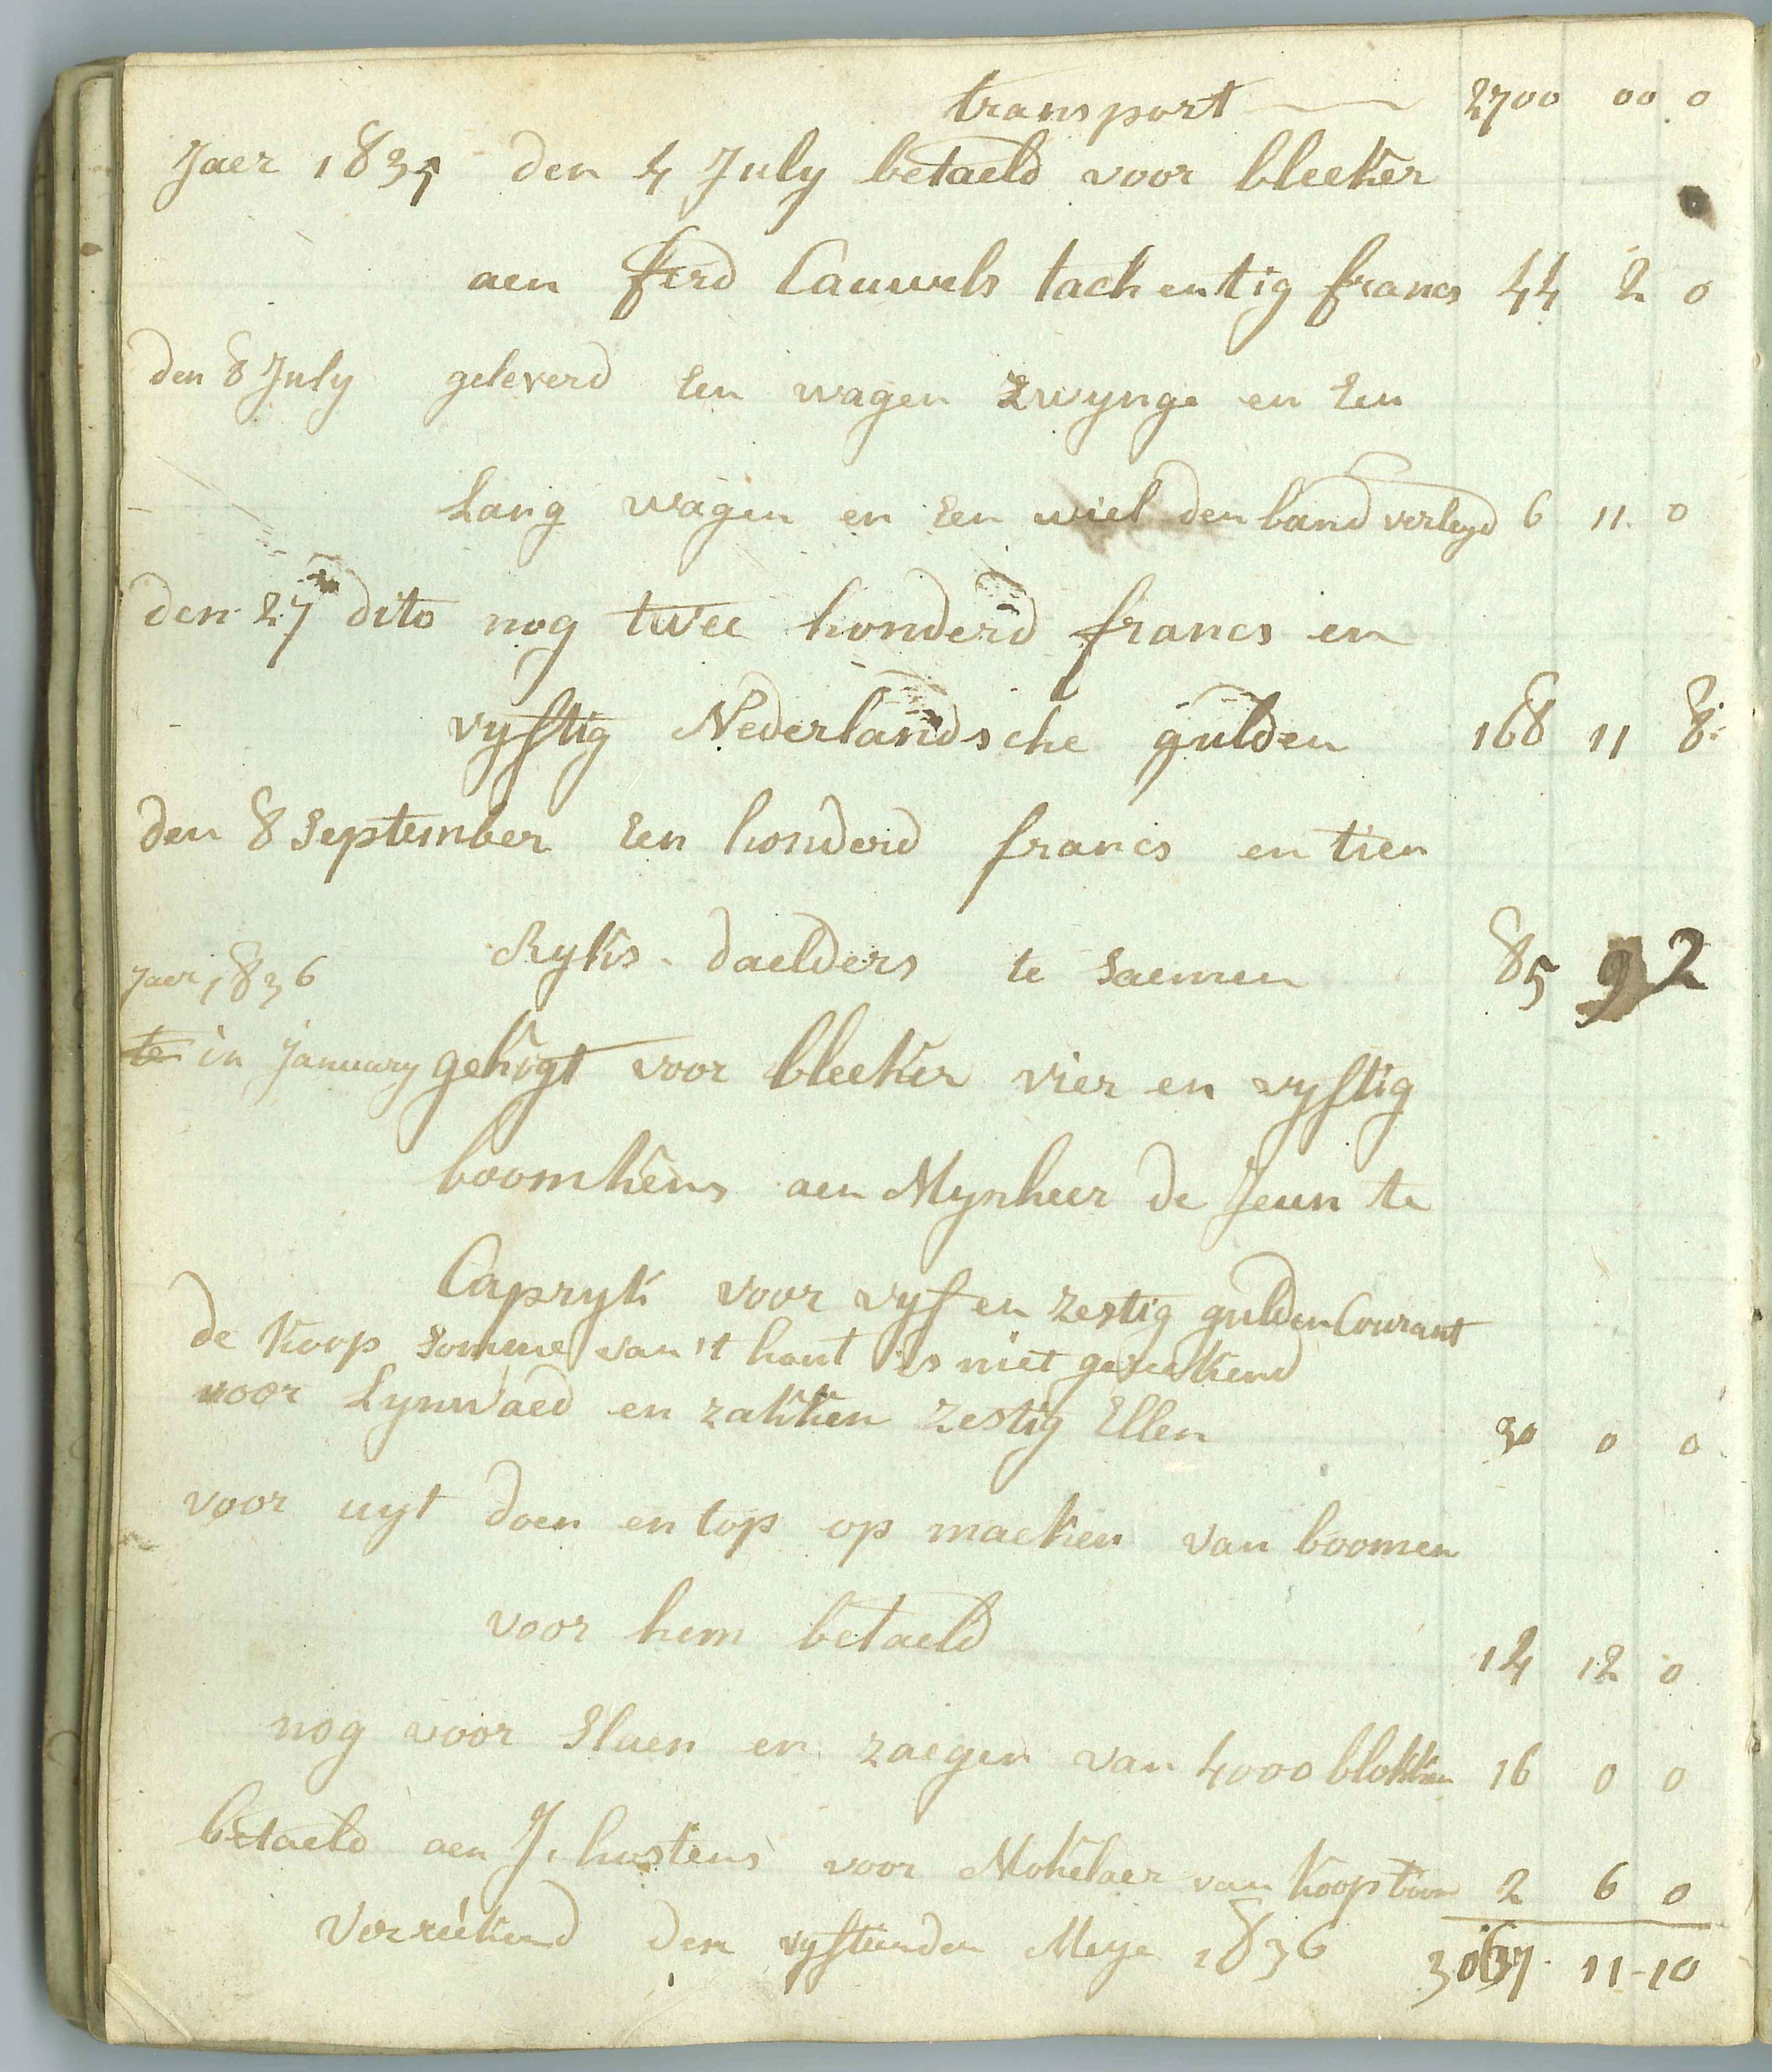 transport 2700 00 0
Jaer 1835 den 4 July betaeld voor bleeker
aen ferd Cauwels tachentig francs 44 2 0
den 8 July geleverd Een wagen zwynge en Een
Lang wagen en Een wiel den band verlegd 6 11 0
den 27 dito nog twee honderd francs en
vyftig Nederlandsche gulden 168 11 8
den 8 September Een honderd francs en tien
Ryks-daelders te saemen 85 9 2
Jaer 1836
in January gekogt voor bleeker vier en vyftig
boomkens aen Mynheer de Jeun te
Capryk voor vyf en zestig gulden Courant
de Koop somme van 't hout is niet gereekend
voor Lynwaed en zakken zestig Ellen 30 0 0
voor uyt doen en top op maeken van boomen
voor hem betaeld 14 12 0
nog voor slaen en zaegen van 4000 blokken 16 0 0
betaeld aen J. hostens voor Mokelaer van Koop 2 6 0
Verreekend den vyftienden Meye 1836 3067 11-10